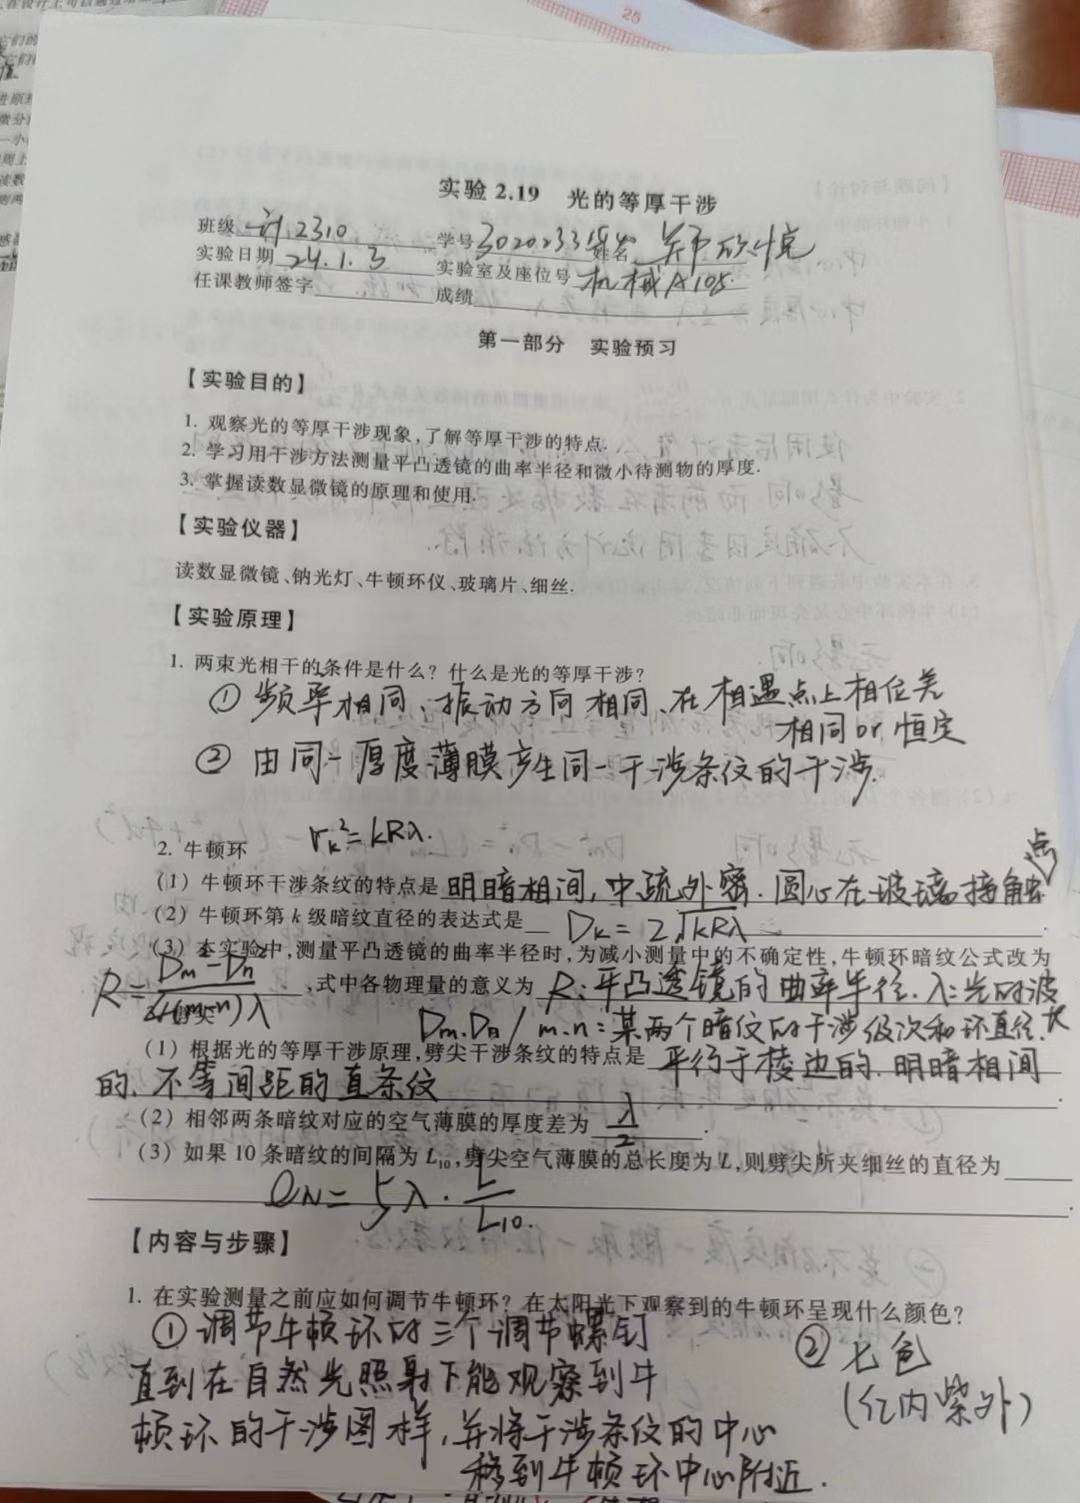 25
实验 2.19 光的等厚干涉
班级 计2310 学号 3020233 姓名
实验日期 24.1.3 实验室及座位号 机械A105.
任课教师签字 成绩
第一部分 实验预习
【实验目的】
1. 观察光的等厚干涉现象,了解等厚干涉的特点.
2. 学习用干涉方法测量平凸透镜的曲率半径和微小待测物的厚度.
3. 掌握读数显微镜的原理和使用.
【实验仪器】
读数显微镜、钠光灯、牛顿环仪、玻璃片、细丝.
【实验原理】
1. 两束光相干的条件是什么? 什么是光的等厚干涉?
① 频率相同、振动方向相同、在相遇点上相位差
相同or恒定
② 由同一厚度薄膜产生同一干涉条纹的干涉.
2. 牛顿环 rk²=kRλ.
(1) 牛顿环干涉条纹的特点是 明暗相间,中疏外密.圆心在玻璃接触点
(2) 牛顿环第 k 级暗纹直径的表达式是 Dk=2√kRλ
(3) 本实验中,测量平凸透镜的曲率半径时,为减小测量中的不确定性,牛顿环暗纹公式改为
R=Dm²-Dn²/4(m-n)λ ,式中各物理量的意义为 R:平凸透镜的曲率半径.λ:光的波长
Dm.Dn/m.n:某两个暗纹的干涉级次和环直径.
(1) 根据光的等厚干涉原理,劈尖干涉条纹的特点是 平行于棱边的.明暗相间
的、不等间距的直条纹
(2) 相邻两条暗纹对应的空气薄膜的厚度差为 λ/2 .
(3) 如果 10 条暗纹的间隔为 L₁₀,劈尖空气薄膜的总长度为 L,则劈尖所夹细丝的直径为
eN=5λ·L/L10.
【内容与步骤】
1. 在实验测量之前应如何调节牛顿环? 在太阳光下观察到的牛顿环呈现什么颜色?
① 调节牛顿环的三个调节螺钉 ② 七色
直到在自然光照射下能观察到牛 (红内紫外)
顿环的干涉图样,并将干涉条纹的中心
移到牛顿环中心附近.